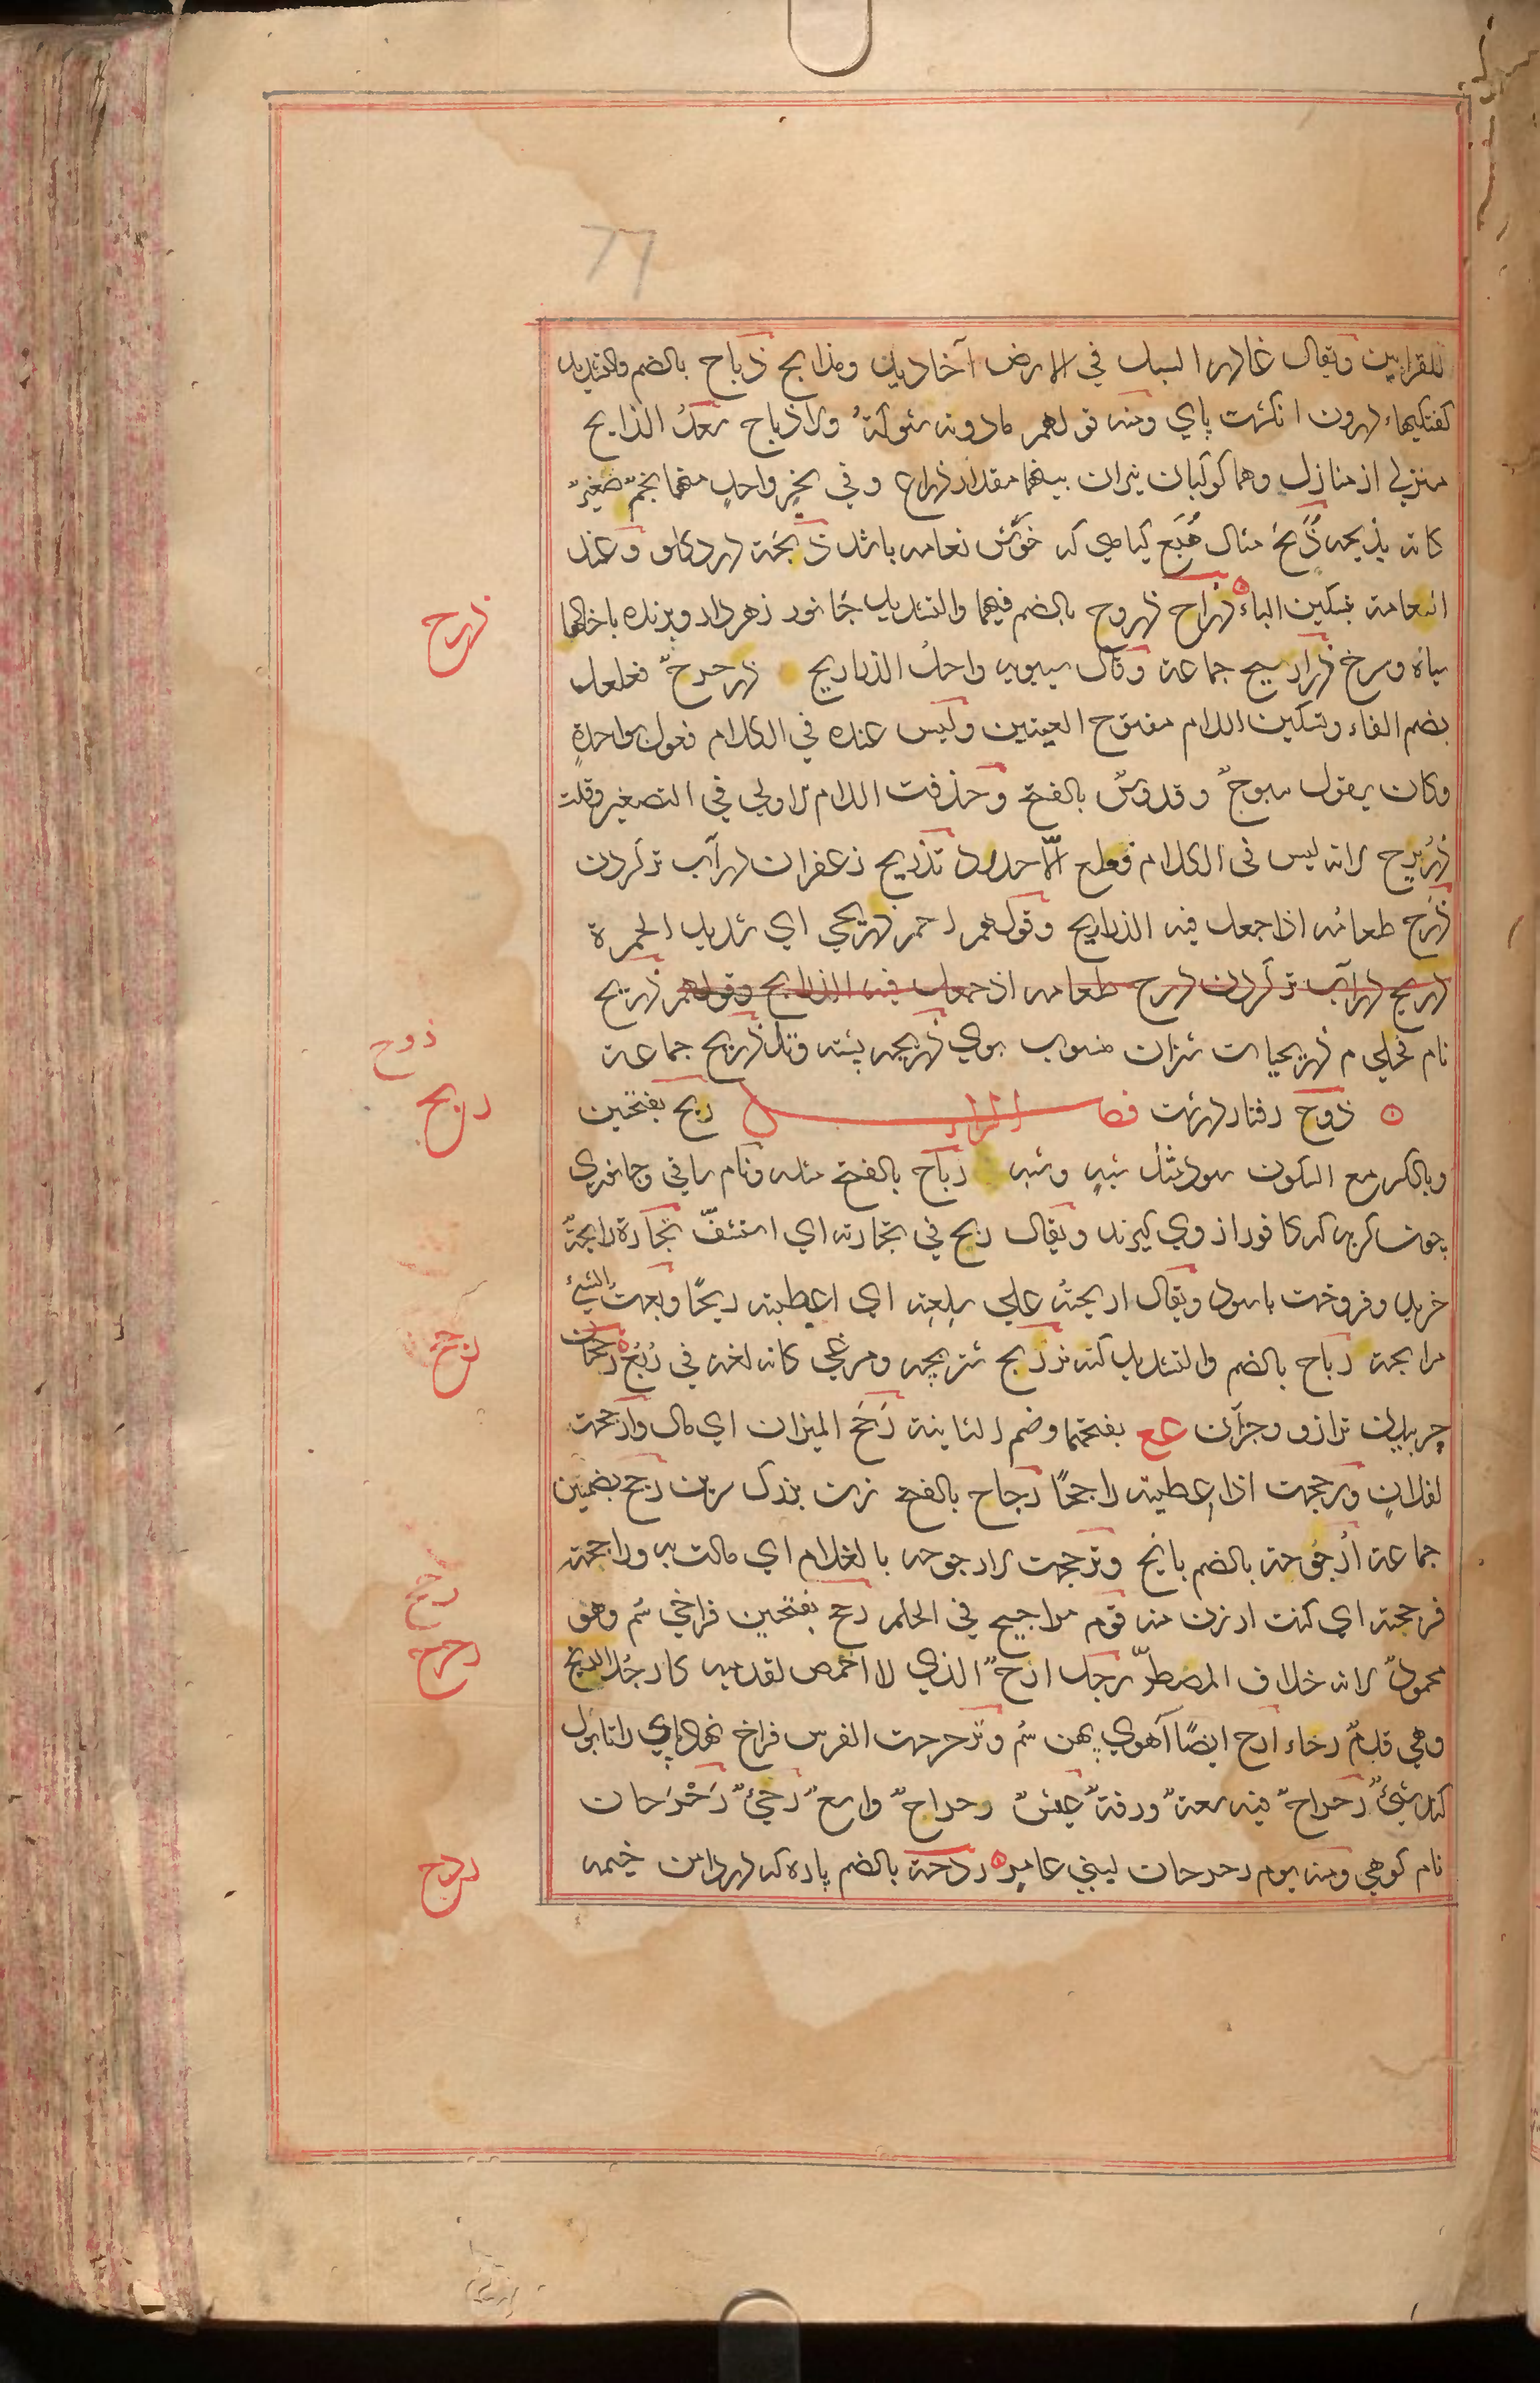 77
للقرابين ويقال غادر السيل في الارض آخاديد ومذابح ذباح بالضم والتشديد
كفتكيهاء درون انكشت پاي ومنه قولهم مادونه شوكة ولا ذباح سعد الذابح
منزلي از منازل وهما كوكبان نيران بينهما مقدار ذراع وفي نحر واحد منهما نجم صغير
كانه يذبحه ذبح مثال هبع كياهي كه خوش نعامه باشد ذبحة درد كلو وعند
العامة بتسكين الباء ذراح ذروح بالضم فيهما والتشديد جانور زهردار وپرنده باخالها
سياه وسرخ ذراريح جماعة وقال سيبويه واحد الذراريح ذرحرح فعلعل
بضم الفاء وتسكين اللام مفتوح العينين وليس عنده في الكلام فعول بواحدة
وكان يقول سبوح وقدوس بالفتح وحذفت اللام الاولي في التصغير وقلت
ذريرح لانه ليس في الكلام فعلع الا حدرد تذريح زعفران در آب تر كردن
ذرح طعامه اذا جعل فيه الذراريح وقولهم احمر ذريحي اي شديد الحمرة
ذريح در آب تر كردن ذرح طعامه اذ جعل فيه الذراريح وقولهم ذريح
نام فحلي م ذريحيات شتران منسوب بوي ذريحه پشته وتل ذريح جماعة
ذوح رفتار درشت فصل الراء ربح بفتحتين
وبالكسر مع السكون سود مثل شبه وشبه رباح بالفتح مثله ونام ساقي وجانوري
چون كربه كه كافور از وي كيرند ويقال ربح في تجارته اي استشف تجارة رابحة
خريد وفروخت باسود ويقال اربحته علي سلعته اي اعطيته ربحا وبعت الشيء
مرابحة رباح بالضم والتشديد كپي نر ربح شتر بچه ومرغي كانه لغة في ربع رجحان
چربيدن ترازو وجزآن ع ع بفتحهما وضم الثانية رجح الميزان اي مال وارجحت
لفلان ورجحت اذا اعطيته راجحا رجاح بالفتح زن بزرك سرين رجح بضمتين
جماعة ارجوحة بالضم بانج وترجحت الارجوحة بالغلام اي مالت به وراجحته
فرجحته اي كنت ارزن منه قوم مراجيح في الحلم رحح بفتحتين فراخي سم وهو
محمود لانه خلاف المصطر رجل ارح الذي لا اخمص لقدميه كارجل الزنج
وهي قدم رحاء ارح ايضا آهوي پهن سم وترحرحت الفرس فراخ نهاد پاي را تا بول
كند شيء رحراح فيه سعة ورقة عيش رحراح واسع رحرحان
نام كوهي ومنه يوم رحرحان لبني عامر ردحة بالضم پاره كه در دامن خيمه
ذرح
ذوح
ربح
رجح
رحح
رحرح
ردح